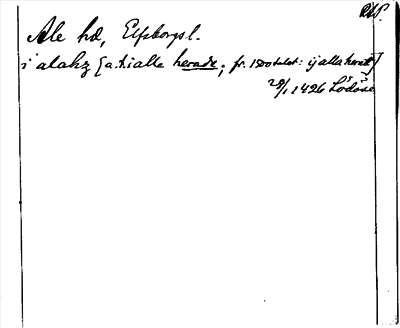 RAP.
Ale hd, Elfsborgs l.
i alahz [a.t. i alle herade; fr. 1500talet: ij alla heret]
29/1 1426 Lödöse